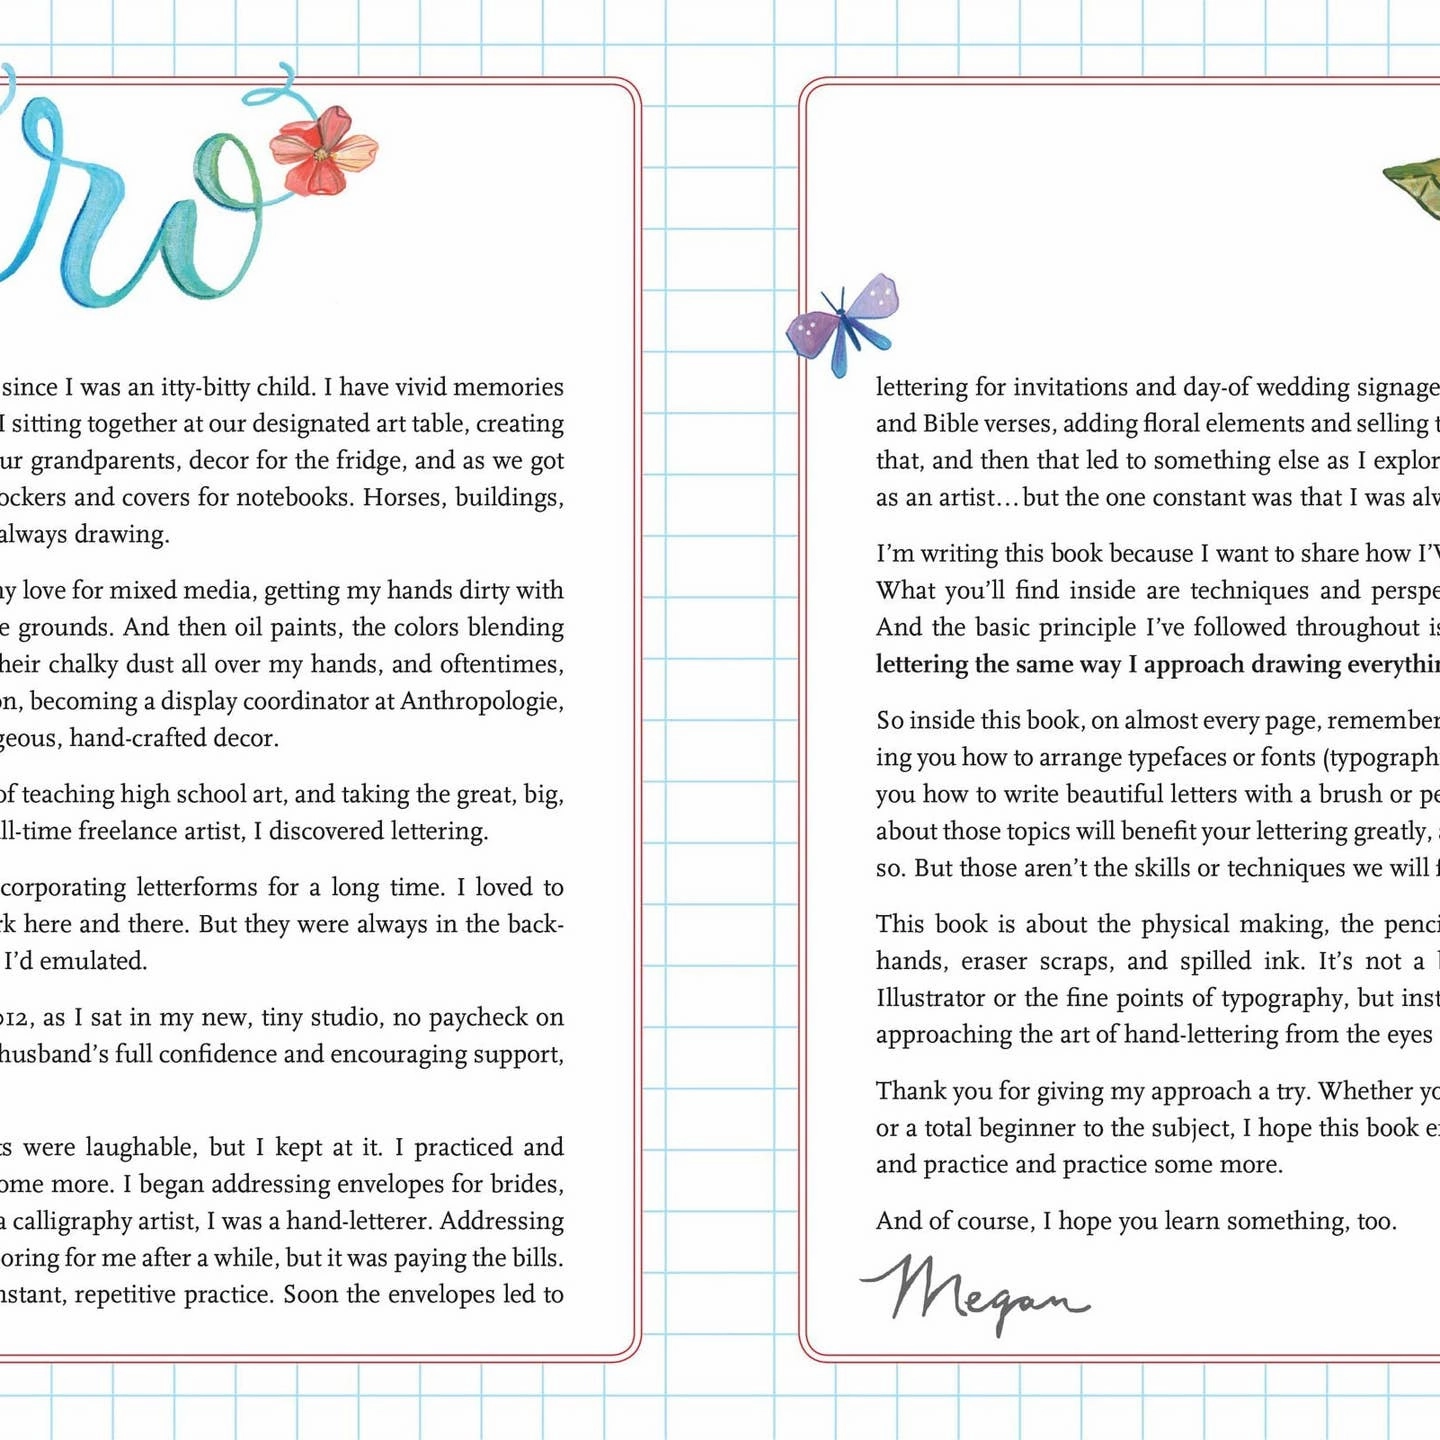 ro
since I was an itty-bitty child. I have vivid memories
I sitting together at our designated art table, creating
grandparents, decor for the fridge, and as we got
and covers for notebooks. Horses, buildings,
always drawing.
love for mixed media, getting my hands dirty with
grounds. And then oil paints, the colors blending
their chalky dust all over my hands, and oftentimes,
becoming a display coordinator at Anthropologie,
hand-crafted decor.
of teaching high school art, and taking the great, big,
freelance artist, I discovered lettering.
letterforms for a long time. I loved to
here and there. But they were always in the back-
I’d emulated.
as I sat in my new, tiny studio, no paycheck on
husband’s full confidence and encouraging support,
were laughable, but I kept at it. I practiced and
more. I began addressing envelopes for brides,
a calligraphy artist, I was a hand-letterer. Addressing
for me after a while, but it was paying the bills.
repetitive practice. Soon the envelopes led to
lettering for invitations and day-of wedding signage
and Bible verses, adding floral elements and selling
that, and then that led to something else as I
as an artist…but the one constant was that I was
I’m writing this book because I want to share how
What you’ll find inside are techniques and
And the basic principle I’ve followed throughout
lettering the same way I approach drawing
So inside this book, on almost every page, remember
ing you how to arrange typefaces or fonts
you how to write beautiful letters with a brush or
about those topics will benefit your lettering greatly,
so. But those aren’t the skills or techniques we will
This book is about the physical making, the
hands, eraser scraps, and spilled ink. It’s not a
Illustrator or the fine points of typography, but
approaching the art of hand-lettering from the eyes
Thank you for giving my approach a try. Whether
or a total beginner to the subject, I hope this book
and practice and practice some more.
And of course, I hope you learn something, too.
Megan